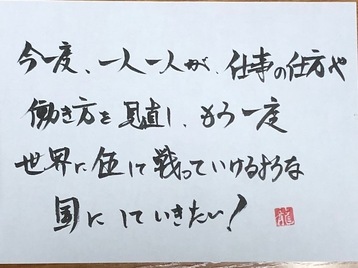 今一度、一人一人が、仕事の仕方や
働き方を見直し、もう一度
世界に伍して戦っていけるような
国にしていきたい!
龍